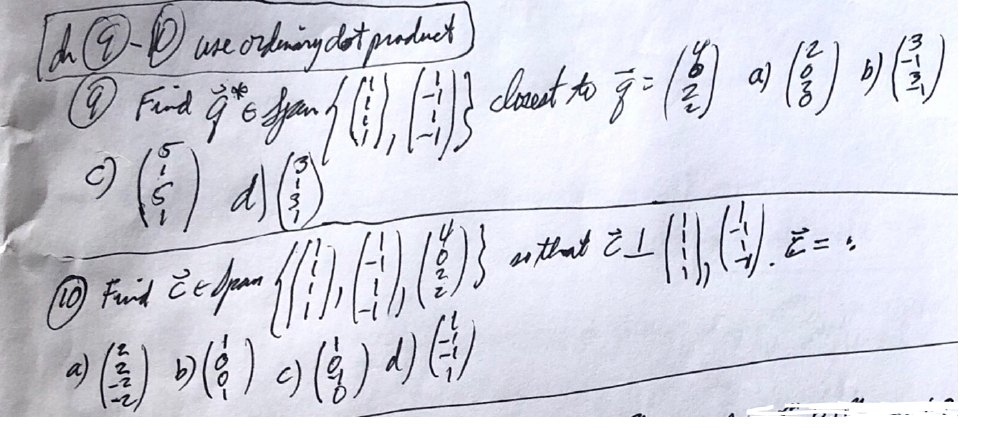 In ⑨-⑩ use ordinary dot product
⑨ Find q⃗* ∈ Span {(1 1 1 1), (1 -1 1 -1)} closest to q⃗ = (4 0 2 2) a) (2 0 3 0) b) (3 -1 3 -1)
c) (5 1 5 1) d) (3 1 3 1)
⑩ Find c⃗ ∈ Span {(1 1 1 1), (1 -1 1 -1), (4 0 2 2)} so that c⃗ ⊥ (1 1 1 1), (1 -1 1 -1). c⃗ = :
a) (2 2 -2 -2) b) (1 0 0 1) c) (1 0 -1 0) d) (1 -1 -1 1)